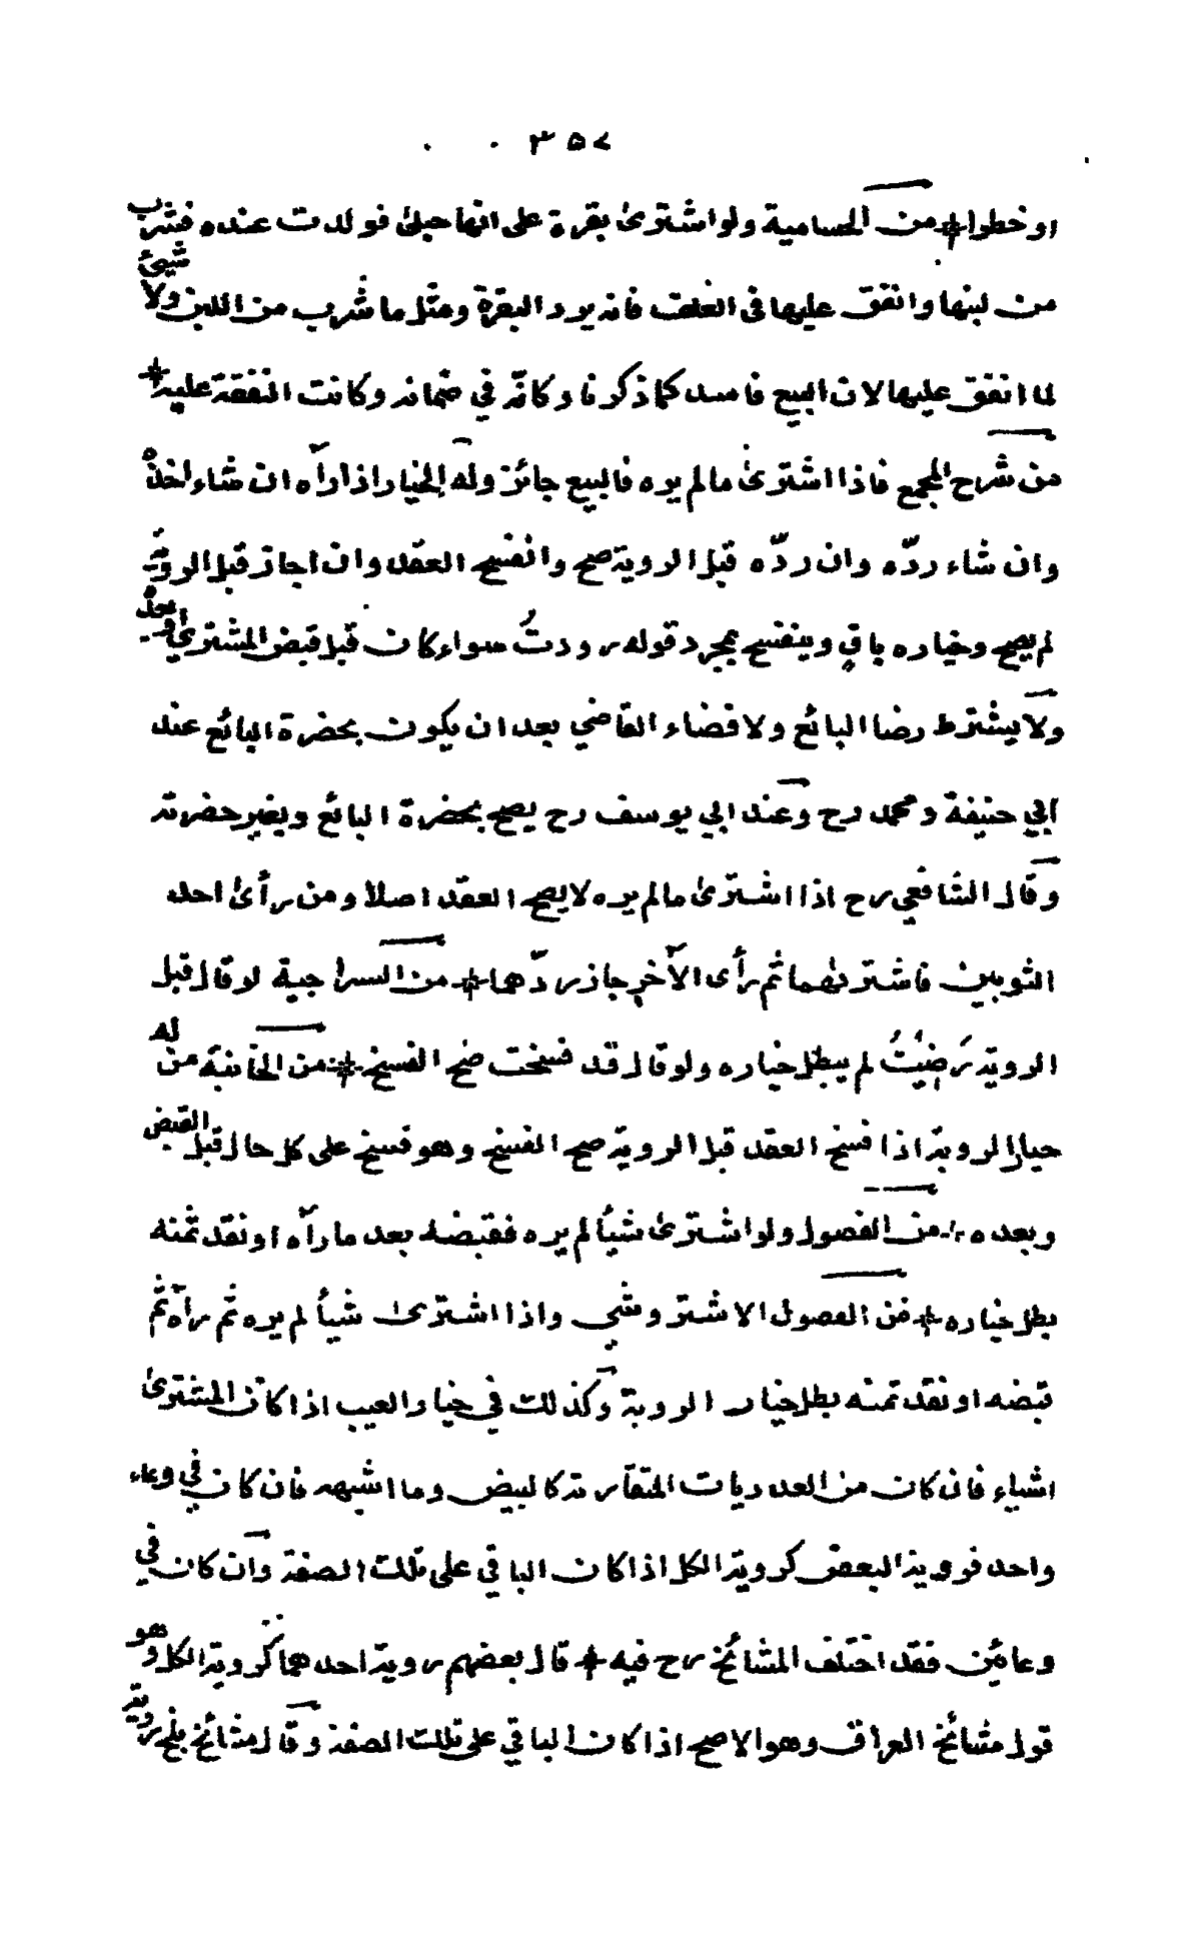 ٣٥٧
او خطوا # من الحسامية ولو اشترىٰ بقرة على انها حبلىٰ فولدت عنده فشرب
من لبنها وانفق عليها فى العلف فانه يرد البقرة ومثل ما شرب من اللبن ولا شيئ
لما انفق عليها لان البيع فاسد كما ذكرنا وكانّه في ضمانه وكانت النفقة عليه #
من شرح المجمع فاذا اشترىٰ ما لم يره فالبيع جائز وله الخيار اذا رآه ان شاء اخذه
وان شاء ردّه وان ردّه قبل الروية صح وانفسخ العقد وان اجاز قبل الروية
لم يصح وخياره باقٍ وينفسخ بمجرد قوله رددتُ سواء كان قبل قبض المشترىٰ او بعده
ولا يشترط رضا البائع ولا قضاء القاضي بعد ان يكون بحضرة البائع عند
ابي حنيفة ومحمد رح وعند ابي يوسف رح يصح بحضرة البائع وبغير حضرته
وقال الشافعي رح اذا اشترىٰ ما لم يره لا يصح العقد اصلا ومن رأىٰ احد
الثوبين فاشترٰىهما ثم رأى الآخر جاز ردّهما # من السراجية لو قال قبل
الروية رَضِيْتُ لم يبطل خياره ولو قال قد فسخت صح الفسخ # من الخانية من له
خيار الروية اذا فسخ العقد قبل الروية صح الفسخ وهو فسخ على كل حال قبل القبض
وبعده # من الفصول ولو اشترىٰ شيأ لم يره فقبضه بعد ما رآه او نقد ثمنه
بطل خياره # من الفصول الاشتروشي واذا اشترىٰ شيأ لم يره ثم رآه ثم
قبضه او نقد ثمنه بطل خيار الروية وكذلك في خيار العيب اذا كان المشترىٰ
اشياء فان كان من العدديات المتقاربة كالبيض وما اشبهه فان كان في وعاء
واحد فروية البعض كروية الكل اذا كان الباقي على تلك الصفة وان كان في
وعائين فقد اختلف المشائخ رح فيه # قال بعضهم روية احدهما كروية الكل وهو
قول مشائخ العراق وهو الاصح اذا كان الباقي على تلك الصفة وقال مشائخ بلخ روية